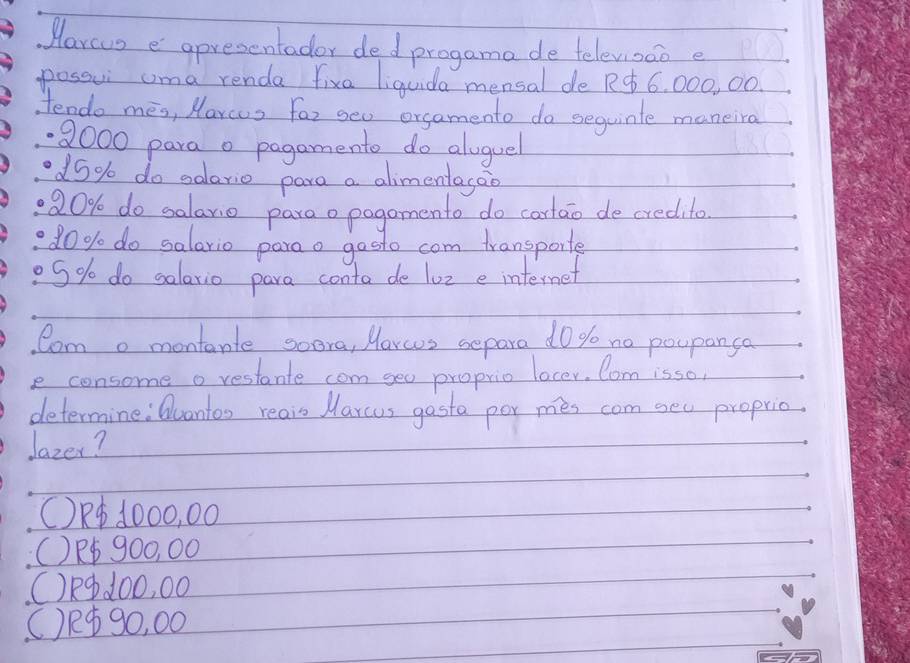 Marcus é apresentador de 1 progama de televisão e
possui uma renda fixa liquida mensal de R$ 6.000,00.
tendo mês, Marcus faz seu orçamento da seguinte maneira
• 2000 para o pagamento do aluguel
• 15% do salario para a alimentação
• 20% do salario para o pagamento do cartão de credito.
• 10% do salario para o gasto com transporte
• 5% do salario para conta de luz e internet
Com o montante soora, Marcus separa 10% na poupança
e consome o restante com seu proprio lacer. Com isso,
determine: Quantos reais Marcus gasta por mês com seu proprio
lazer?
( ) R$ 1000,00
( ) R$ 900,00
( ) R$ 100,00
( ) R$ 90,00